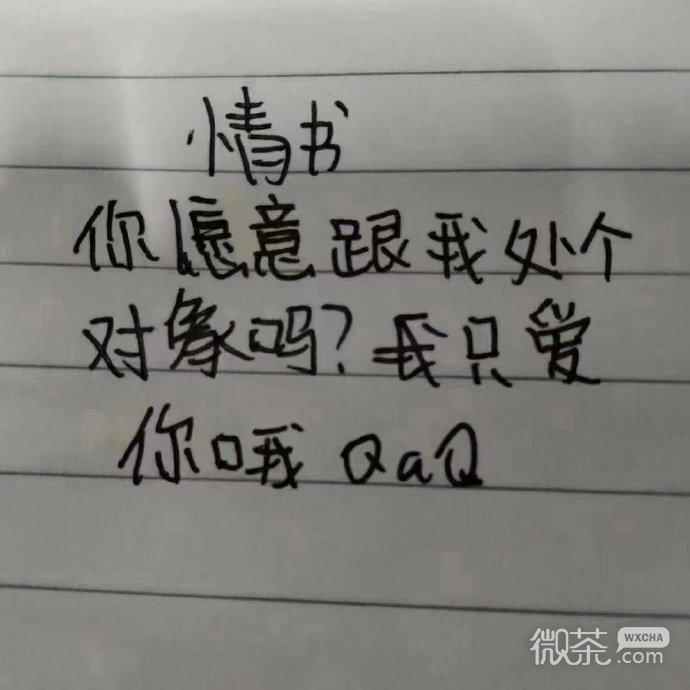 情书
你愿意跟我处个
对象吗？我只爱
你哦 QaQ
微茶 WXCHA
.com